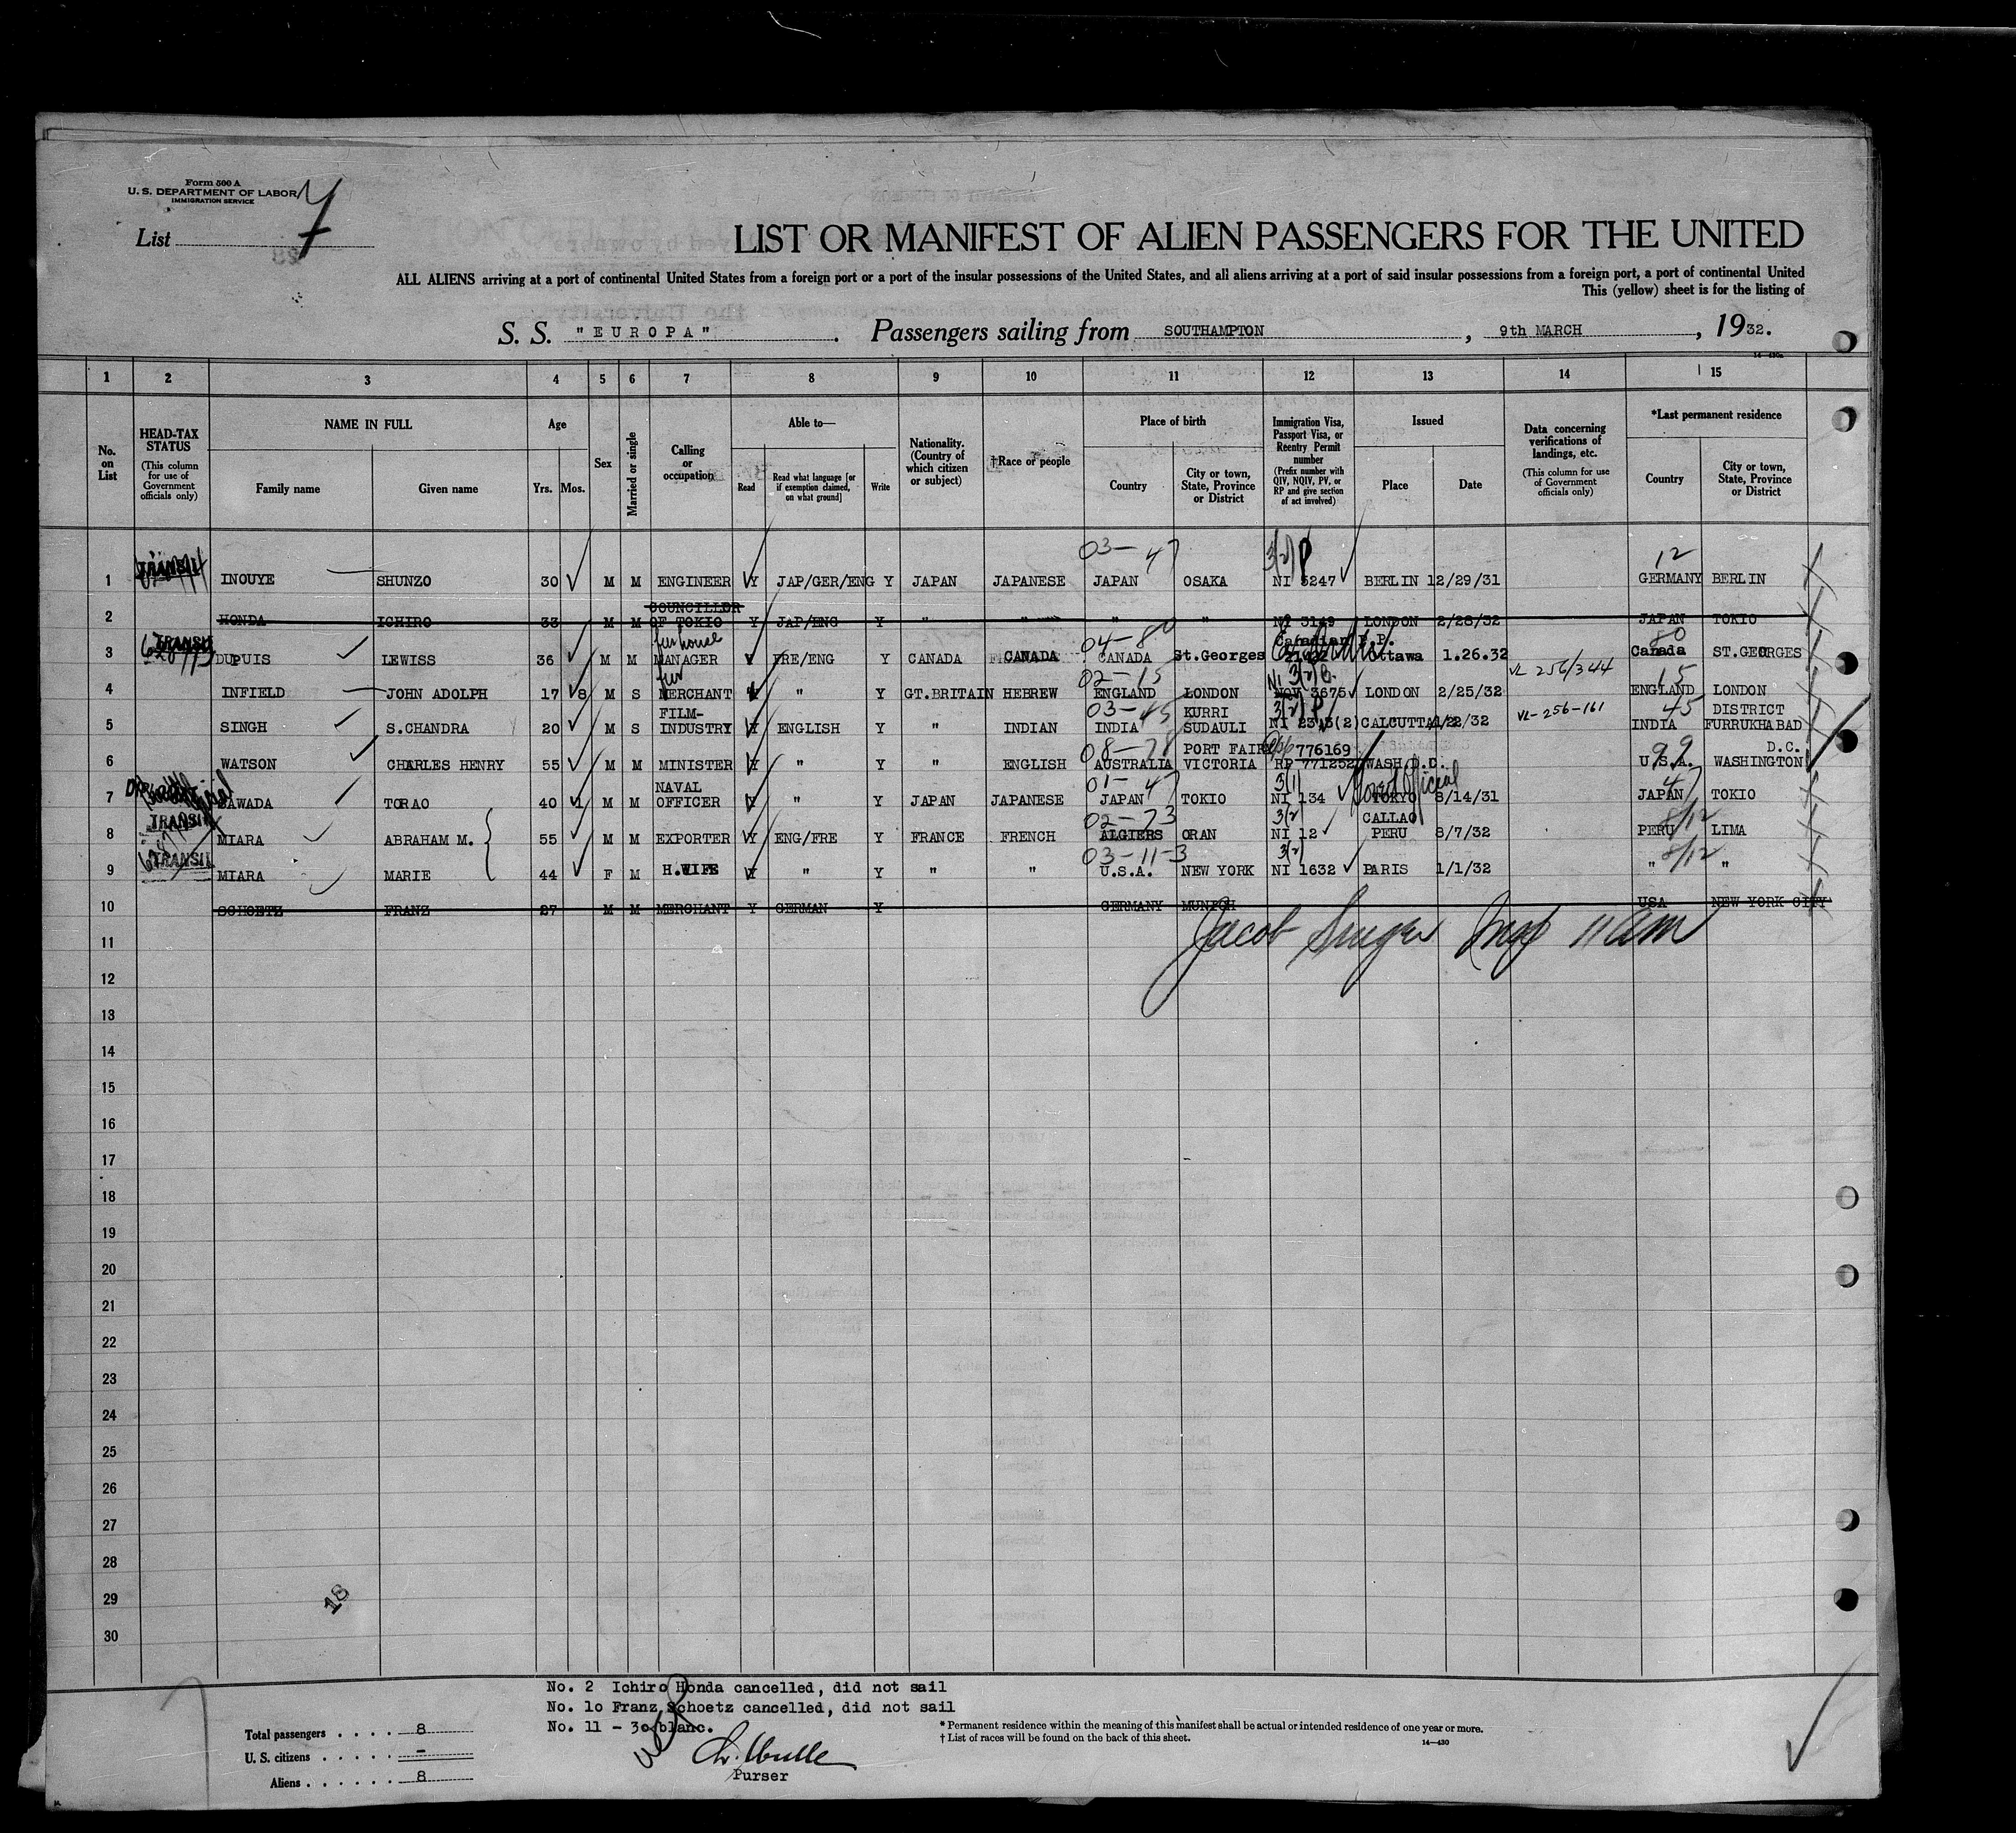 Form 500 A
U. S. DEPARTMENT OF LABOR
IMMIGRATION SERVICE
List 7
LIST OR MANIFEST OF ALIEN PASSENGERS FOR THE UNITED
ALL ALIENS arriving at a port of continental United States from a foreign port or a port of the insular possessions of the United States, and all aliens arriving at a port of said insular possessions from a foreign port, a port of continental United
This (yellow) sheet is for the listing of
S. S. "EUROPA". Passengers sailing from SOUTHAMPTON, 9th MARCH, 1932.
14-430a
1 2 3 4 5 6 7 8 9 10 11 12 13 14 15
No. on List
HEAD-TAX STATUS (This column for use of Government officials only)
NAME IN FULL
Family name Given name
Age
Yrs. Mos.
Sex
Married or single
Calling or occupation
Able to—
Read Read what language [or if exemption claimed, on what ground] Write
Nationality. (Country of which citizen or subject)
†Race or people
Place of birth
Country City or town, State, Province or District
Immigration Visa, Passport Visa, or Reentry Permit number (Prefix number with QIV, NQIV, PV, or RP and give section of act involved)
Issued
Place Date
Data concerning verifications of landings, etc. (This column for use of Government officials only)
*Last permanent residence
Country City or town, State, Province or District
TRANSIT 03-47 3(2)P 12
1 INOUYE SHUNZO 30 M M ENGINEER Y JAP/GER/ENG Y JAPAN JAPANESE JAPAN OSAKA NI 5247 BERLIN 12/29/31 GERMANY BERLIN
COUNCILLOR
2 HONDA ICHIRO 33 M M OF TOKIO Y JAP/ENG Y " " " " NI 3149 LONDON 2/28/32 JAPAN TOKIO
TRANSIT fur house 04-80 Canadian P.P. 80
3 DUPUIS LEWISS 36 M M MANAGER Y FRE/ENG Y CANADA CANADA CANADA St.Georges Ottawa 1.26.32 Canada ST.GEORGES
fur 02-15 NI 3(2)B VL 256/344 15
4 INFIELD JOHN ADOLPH 17 8 M S MERCHANT Y " Y GT.BRITAIN HEBREW ENGLAND LONDON 3675 LONDON 2/25/32 ENGLAND LONDON
FILM- 03-45 KURRI 3(2)P VL-256-161 45 DISTRICT
5 SINGH S.CHANDRA 20 M S INDUSTRY Y ENGLISH Y " INDIAN INDIA SUDAULI CALCUTTA INDIA FURRUKHABAD
08-78 PORT FAIRY 776169 99 D.C.
6 WATSON CHARLES HENRY 55 M M MINISTER Y " Y " ENGLISH AUSTRALIA VICTORIA RP 771252 WASH D.D. U.S.A. WASHINGTON
NAVAL 01-47 3(1) Govt Official 47
7 SAWADA TORAO 40 1 M M OFFICER Y " Y JAPAN JAPANESE JAPAN TOKIO NI 134 TOKYO 8/14/31 JAPAN TOKIO
TRANSIT 02-73 3(2) CALLAO 8/12
8 MIARA ABRAHAM M. 55 M M EXPORTER Y ENG/FRE Y FRANCE FRENCH ALGIERS ORAN NI 12 PERU 8/7/32 PERU LIMA
TRANSIT 03-11-3 3(2) 8/12
9 MIARA MARIE 44 F M H.WIFE Y " Y " " U.S.A. NEW YORK NI 1632 PARIS 1/1/32 " "
10 SCHOETZ FRANZ 27 M M MERCHANT Y GERMAN Y GERMANY MUNICH USA NEW YORK CITY
11 Jacob Singer Insp 11 am
12
13
14
15
16
17
18
19
20
21
22
23
24
25
26
27
28
29
30
18
No. 2 Ichiro Honda cancelled, did not sail
No. 1o Franz Schoetz cancelled, did not sail
No. 11 - 3o blanc.
Total passengers . . . . 8
U. S. citizens . . . . . -
Aliens . . . . . . 8
Purser
* Permanent residence within the meaning of this manifest shall be actual or intended residence of one year or more.
† List of races will be found on the back of this sheet.
14—430